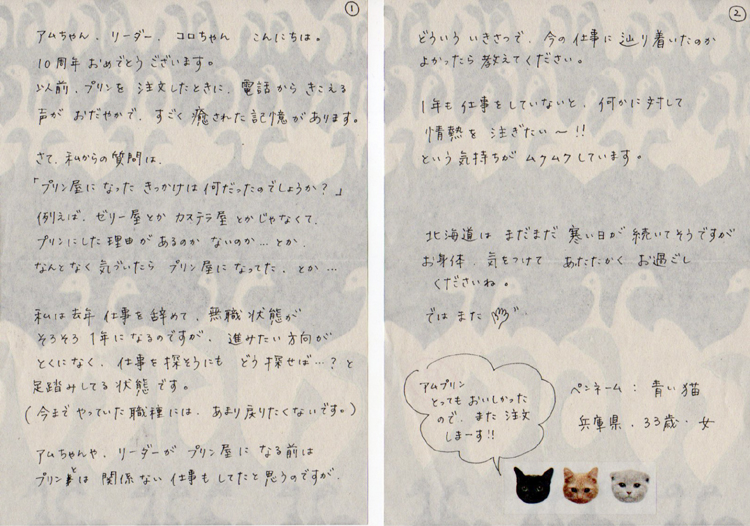 ①
アムちゃん、リーダー、コロちゃん こんにちは。
10周年おめでとうございます。
以前、プリンを注文したときに、電話からきこえる
声がおだやかで、すごく癒された記憶があります。
さて、私からの質問は、
「プリン屋になったきっかけは何だったのでしょうか?」
例えば、ゼリー屋とかカステラ屋とかじゃなくて、
プリンにした理由があるのかないのか…とか、
なんとなく気づいたらプリン屋になってた、とか…
私は去年仕事を辞めて、無職状態が
そろそろ1年になるのですが、進みたい方向が
とくになく、仕事を探そうにもどう探せば…?と
足踏みしてる状態です。
(今までやっていた職種には、あまり戻りたくないです。)
アムちゃんや、リーダーがプリン屋になる前は
プリンとは関係ない仕事もしてたと思うのですが、
②
どういういきさつで、今の仕事に辿り着いたのか
よかったら教えてください。
1年も仕事をしていないと、何かに対して
情熱を注ぎたい〜!!
という気持ちがムクムクしています。
北海道はまだまだ寒い日が続いてそうですが
お身体、気をつけてあたたかくお過ごし
くださいね。
ではまた
アムプリン
とってもおいしかった
ので、また注文
しまーす!!
ペンネーム:青い猫
兵庫県・33歳・女